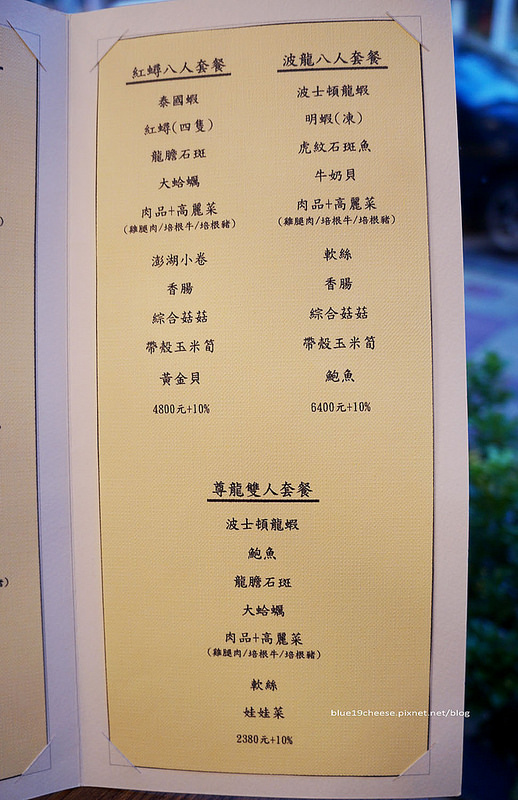 紅蟳八人套餐
泰國蝦
紅蟳(四隻)
龍膽石斑
大蛤蠣
肉品+高麗菜
(雞腿肉/培根牛/培根豬)
澎湖小卷
香腸
綜合菇菇
帶殼玉米筍
黃金貝
4800元+10%
波龍八人套餐
波士頓龍蝦
明蝦(凍)
虎紋石斑魚
牛奶貝
肉品+高麗菜
(雞腿肉/培根牛/培根豬)
軟絲
香腸
綜合菇菇
帶殼玉米筍
鮑魚
6400元+10%
尊龍雙人套餐
波士頓龍蝦
鮑魚
龍膽石斑
大蛤蠣
肉品+高麗菜
(雞腿肉/培根牛/培根豬)
軟絲
娃娃菜
2380元+10%
blue19cheese.pixnet.net/blog